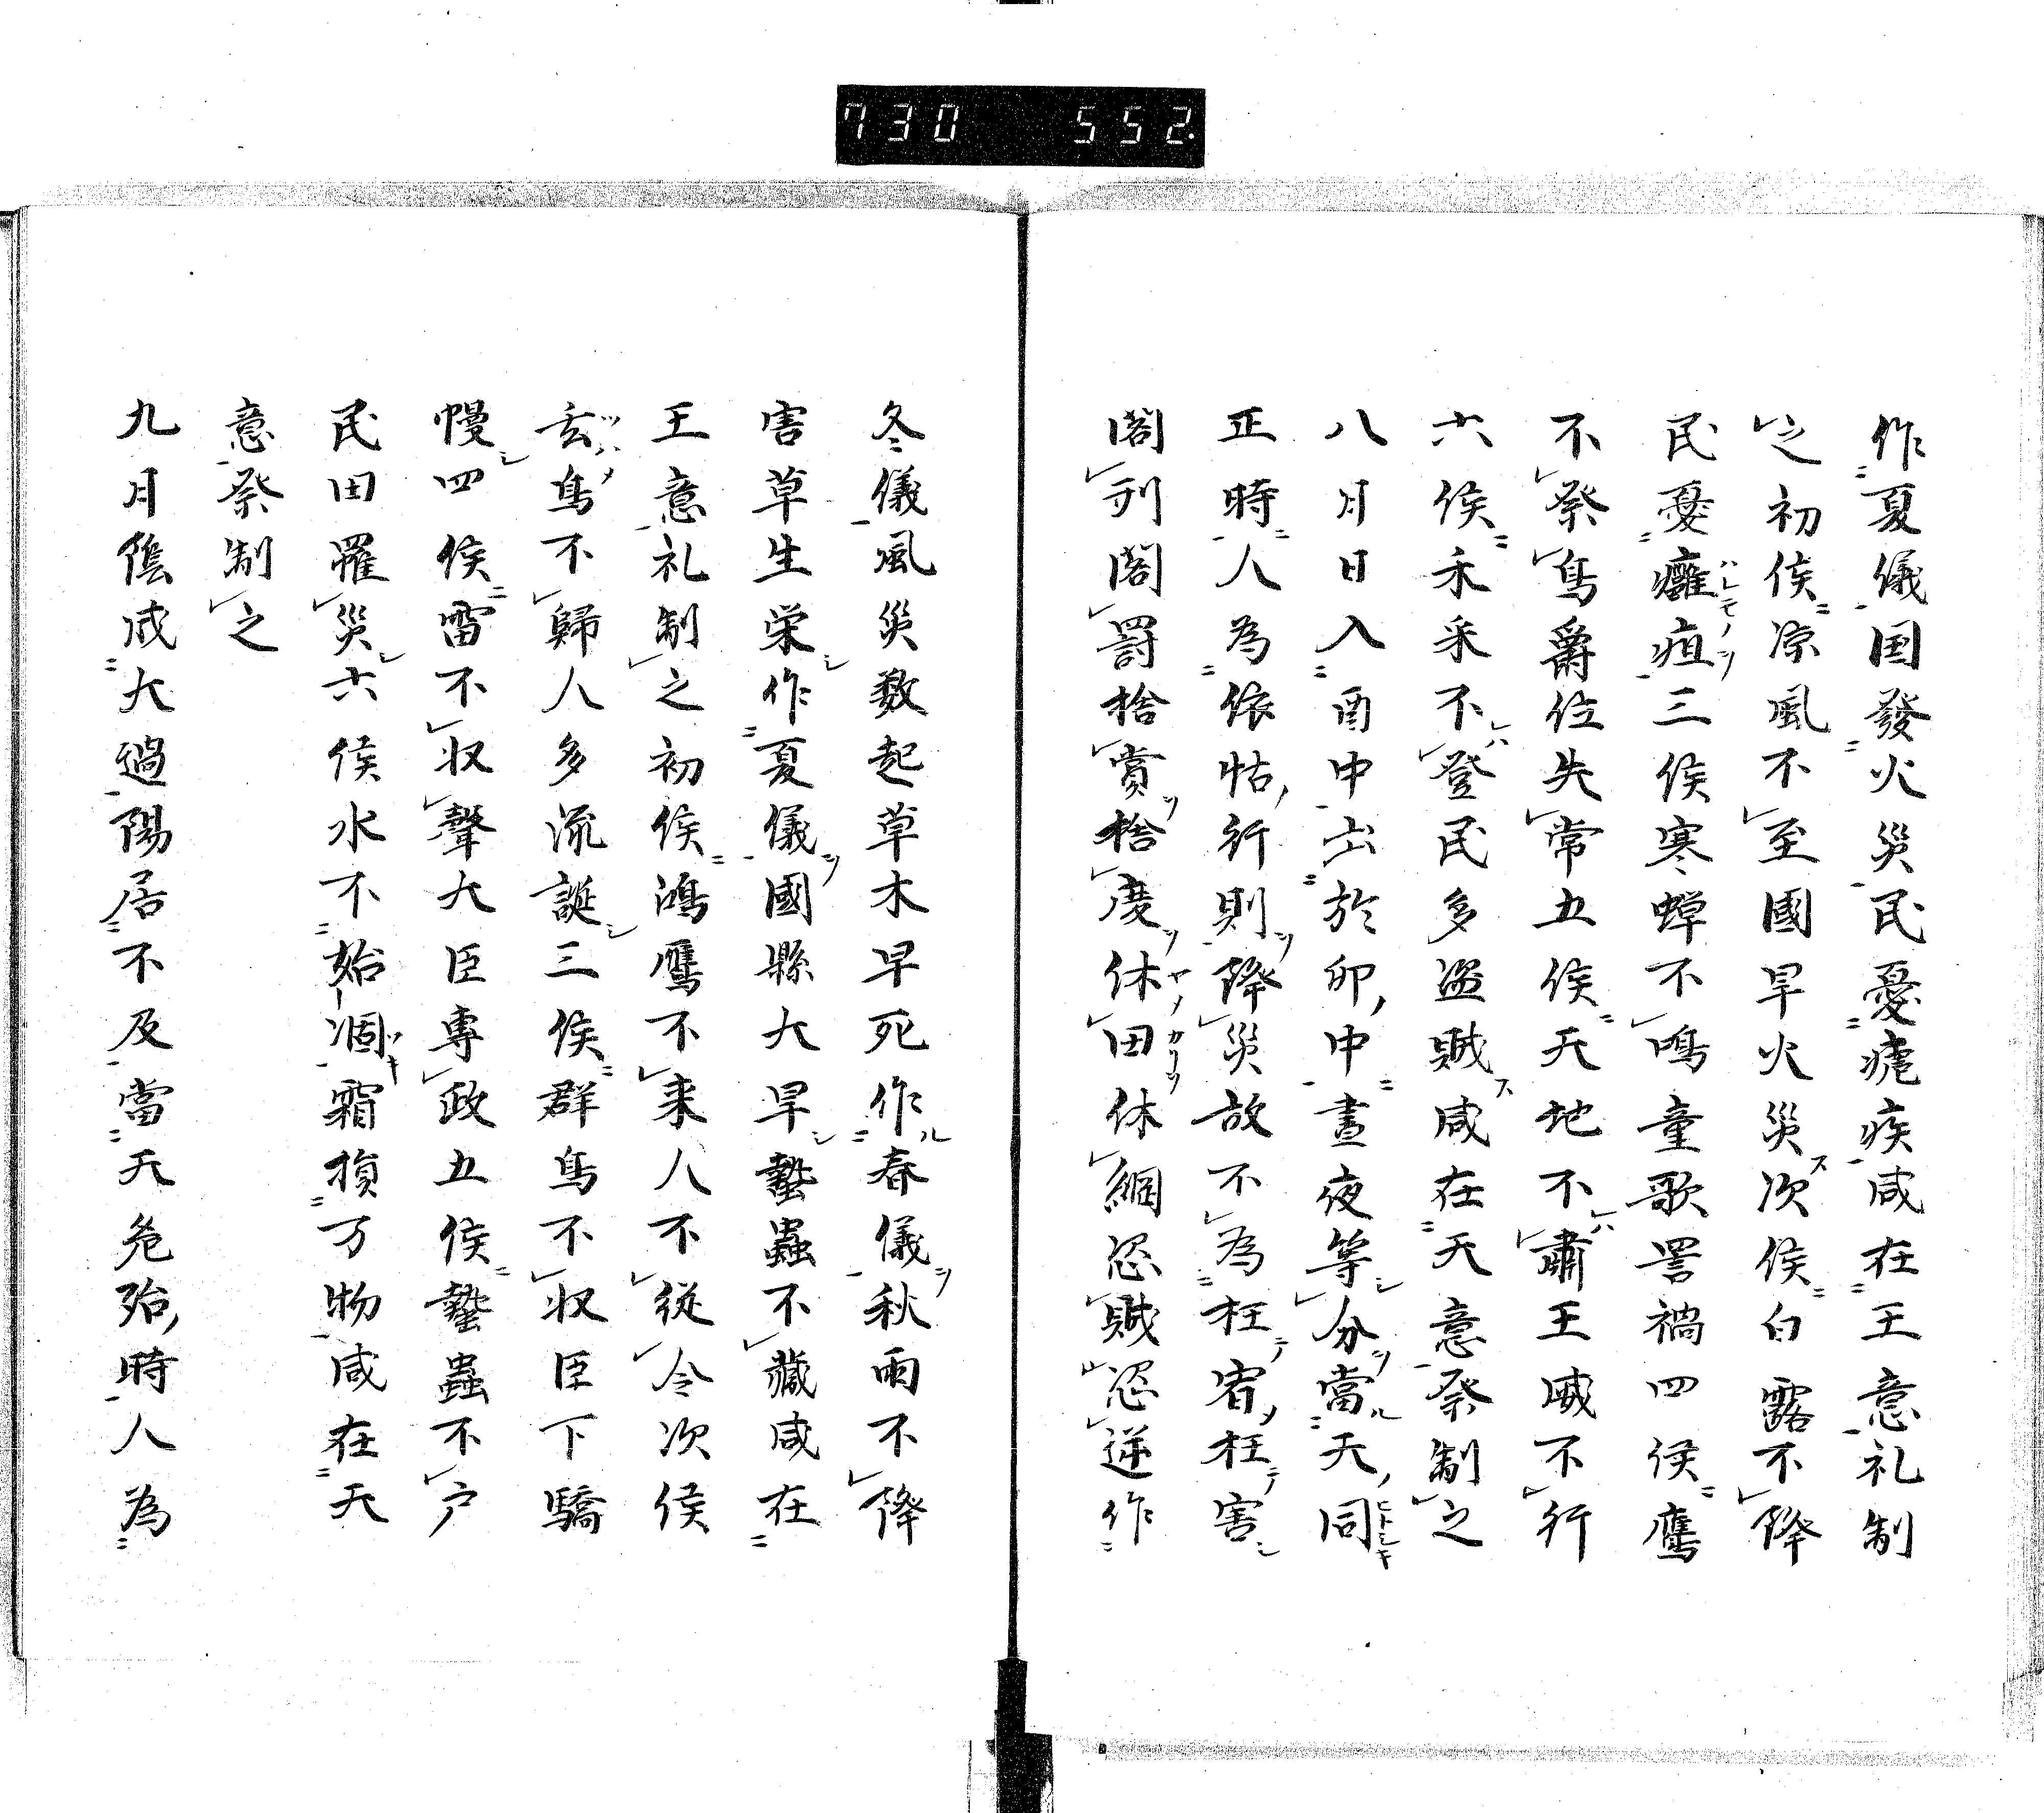 730 552.
作夏儀国發火災民憂瘧疾咸在王意礼制
之初侯凉風不至國旱火災次侯白露不降
民憂癰疽三侯寒蟬不鳴童歌詈禍四侯鷹
不祭鳥爵位失常五侯天地不肅王威不行
六侯禾釆不登民多盜賊咸在天意祭制之
八月日入酉中出於卯中晝夜等分當天同
正時人為依怙行則降災故不為枉宥枉害
閣刑閣罰捨賞捨度休田休網恣賊恣逆作
冬儀風災数起草木早死作春儀秋雨不降
害草生栄作夏儀國縣大旱蟄蟲不藏咸在
王意礼制之初侯鴻鴈不来人不從令次侯
玄鳥不歸人多流誕三侯群鳥不収臣下驕
慢四侯雷不収聲大臣専政五侯蟄蟲不戸
民田罹災六侯水不始涸霜損万物咸在天
意祭制之
九月陰咸大過陽居不及當天危殆時人為